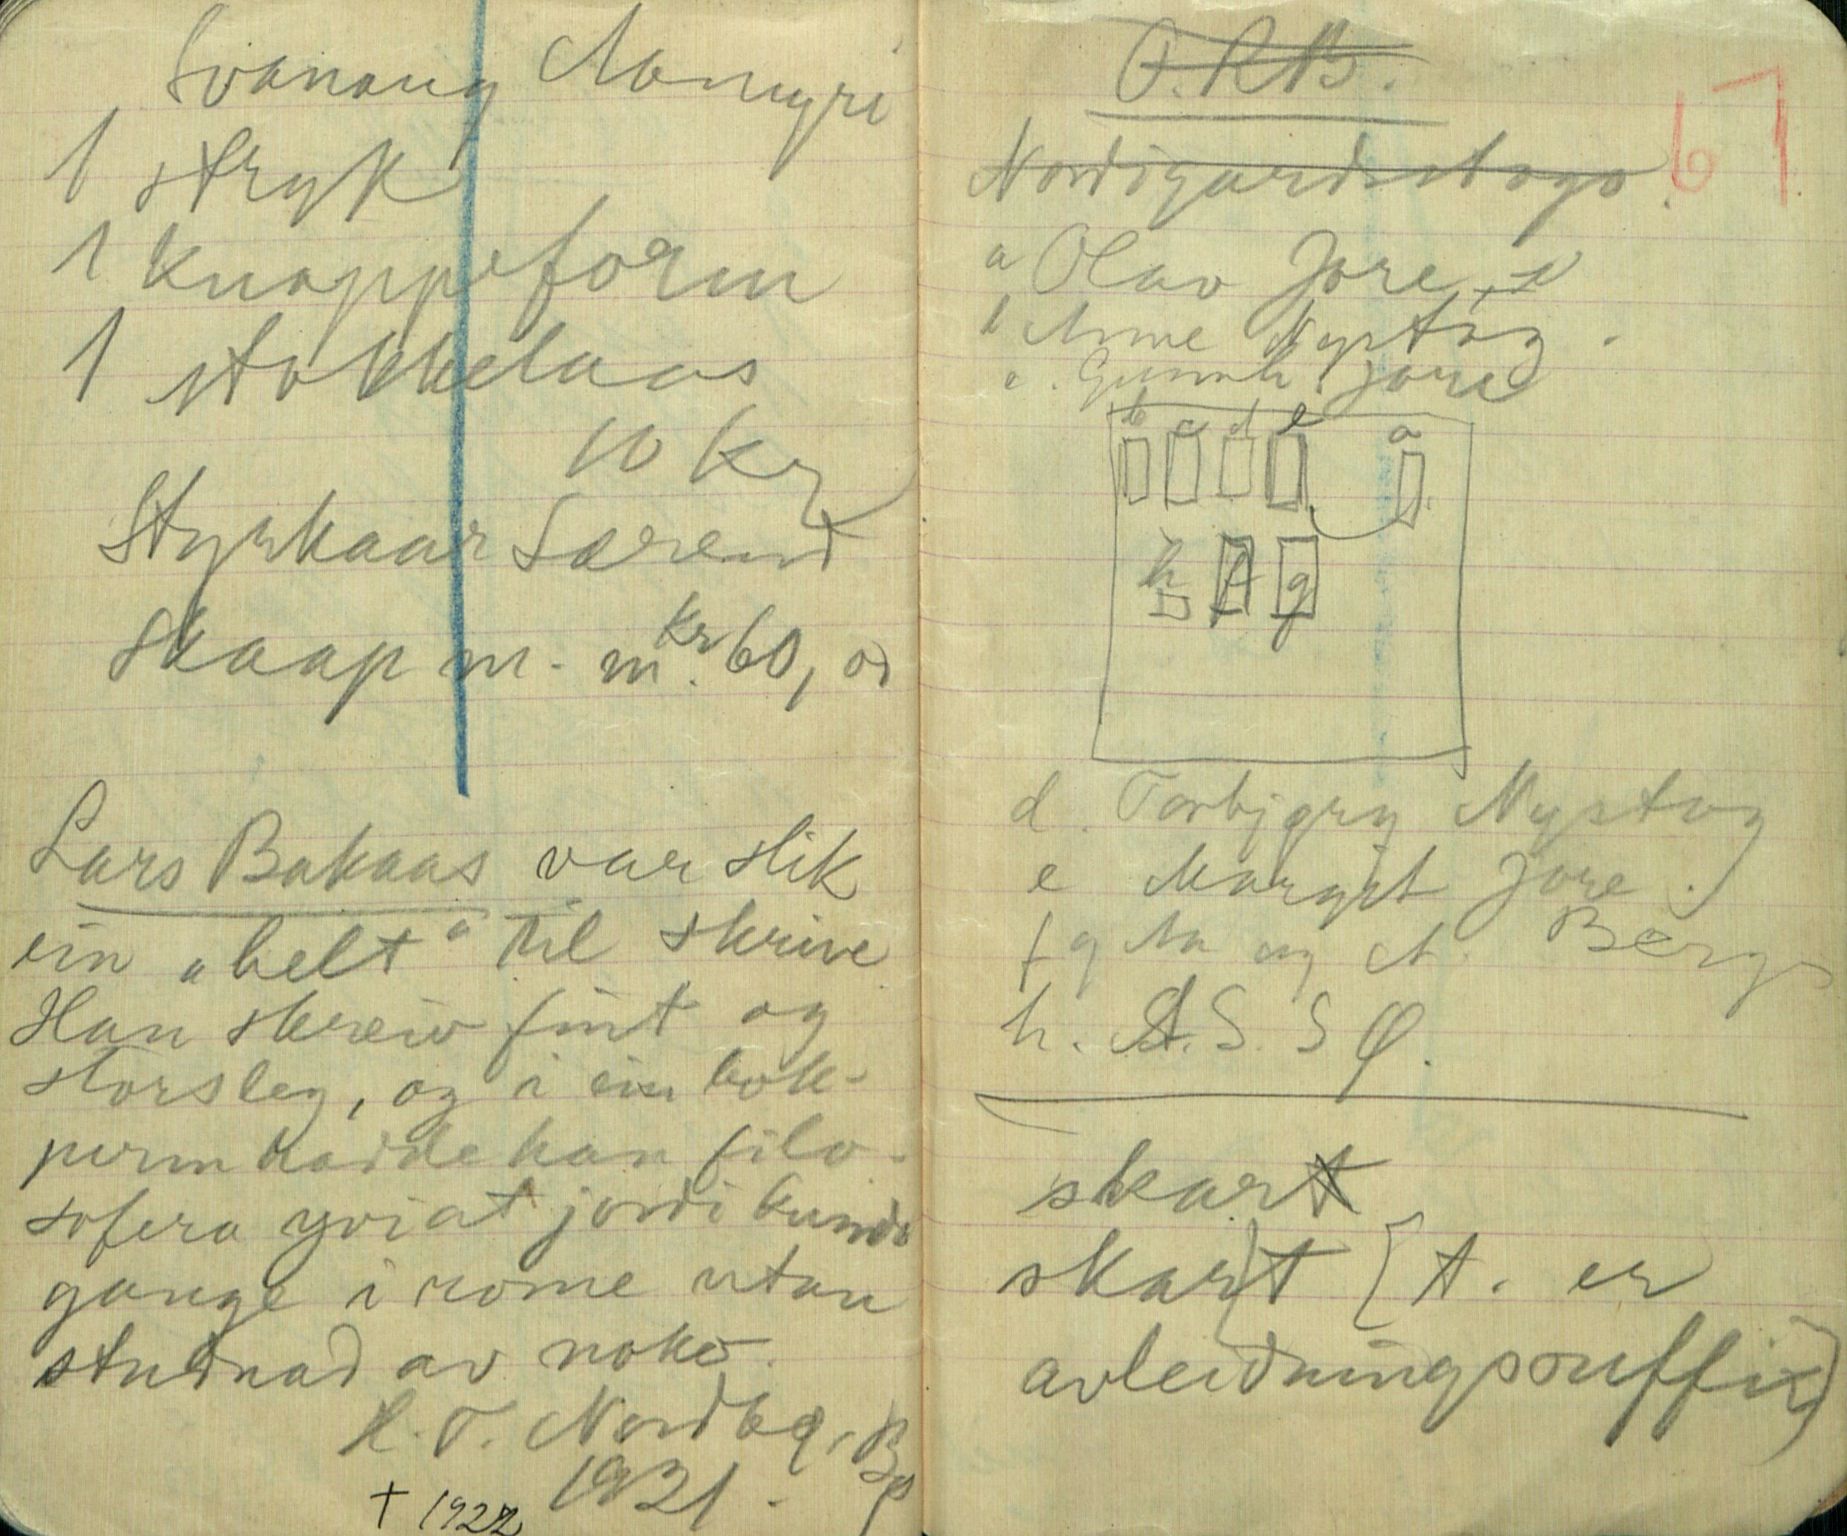 Svanaug Aamyri
1 stryk
1 knappeform
1 stokkelaas
10 kr
Styrkaar Særend
skaap m. m. kr 60, oo
Lars Bakaas var slik
ein "helt" til skrive
Han skreiv fint og
storsleg, og i ein bok-
perm hadde han filo-
sofera yvi at jordi kunde
gange i rome utan
studnad av noko.
H. T. Nordbø, Bø
1921.
† 1922
O.R.B.
67
Nordigardsstogo
a Olav Jore
b Anne Nystog.
c. Gunnh. Jore
b c d e a
h f g
d. Torbjørg Nystog
e Margit Jore.
f g Aa og A. Berge
h. A. S. S Ø.
skart
skar)t [t. er
avleidningssuffix]